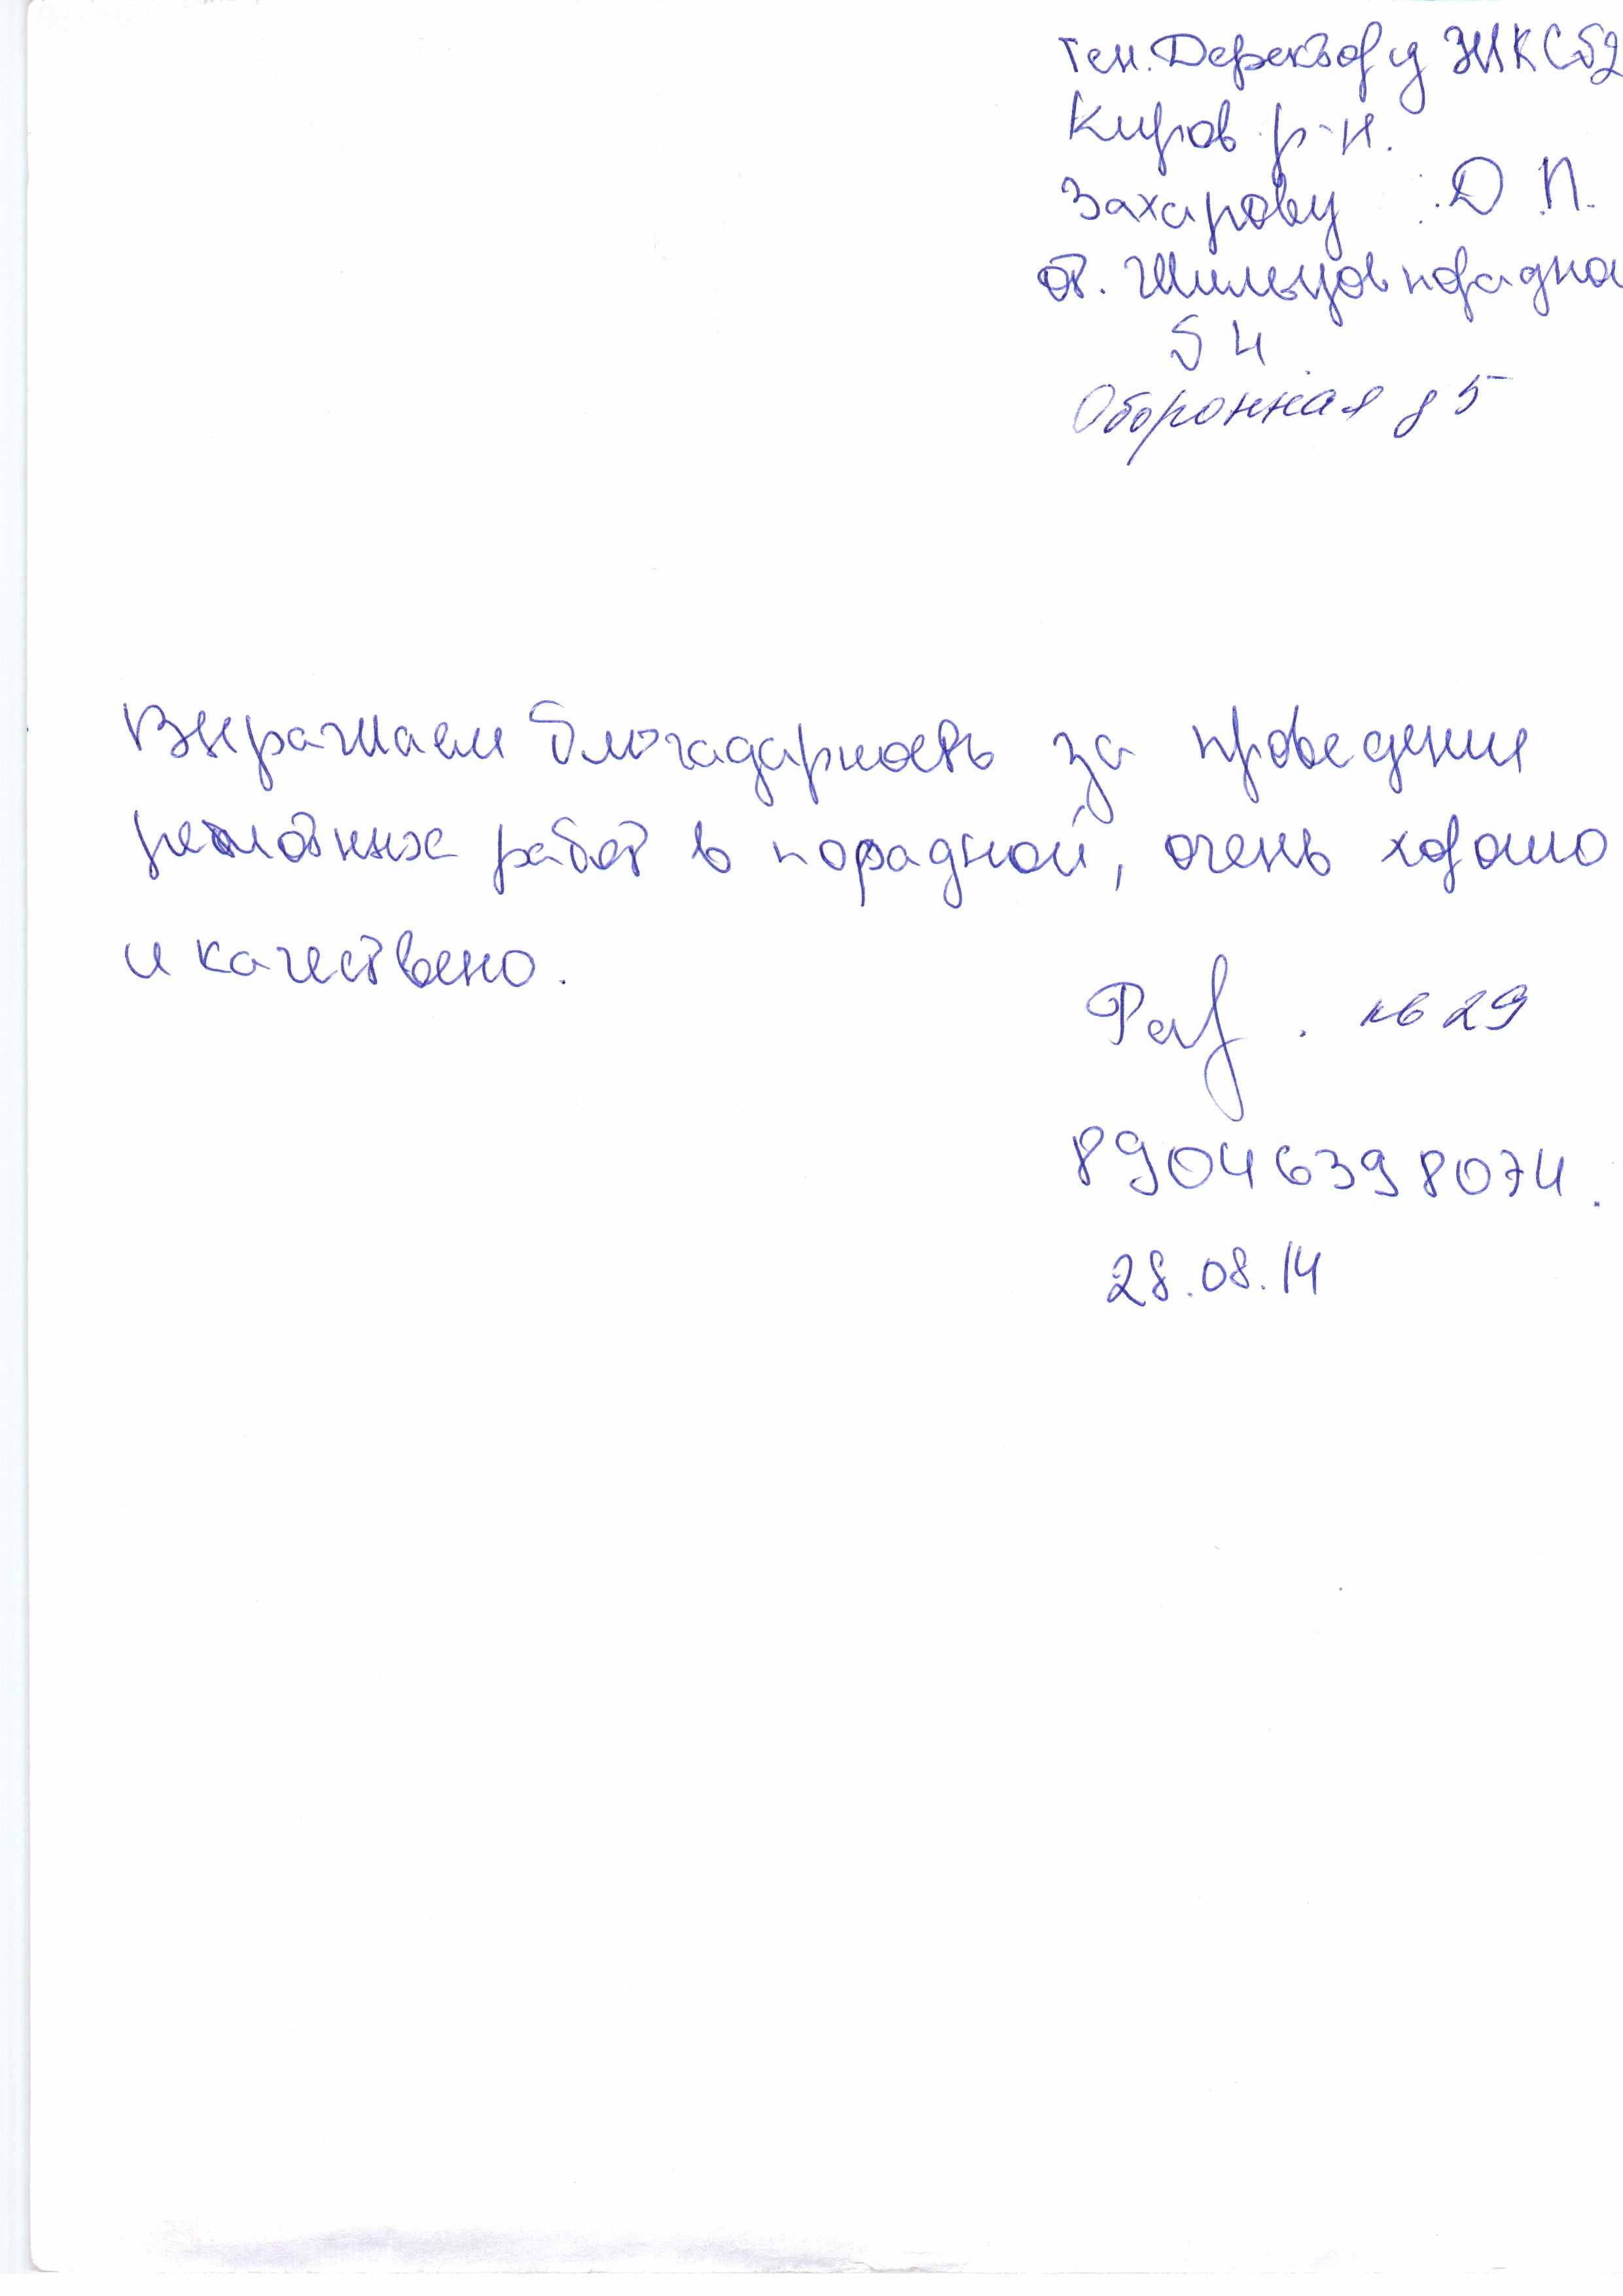 Ген. Деректору ЖКС б2
Киров р-н.
Захарову Д. П.
от. Жильцов порадна
5 4
Оборонная д 5
Выражаем благадарность за проведения
ремотных работ в порадной, очень хорошо
и качествено.
кв 29
89046398074.
28.08.14